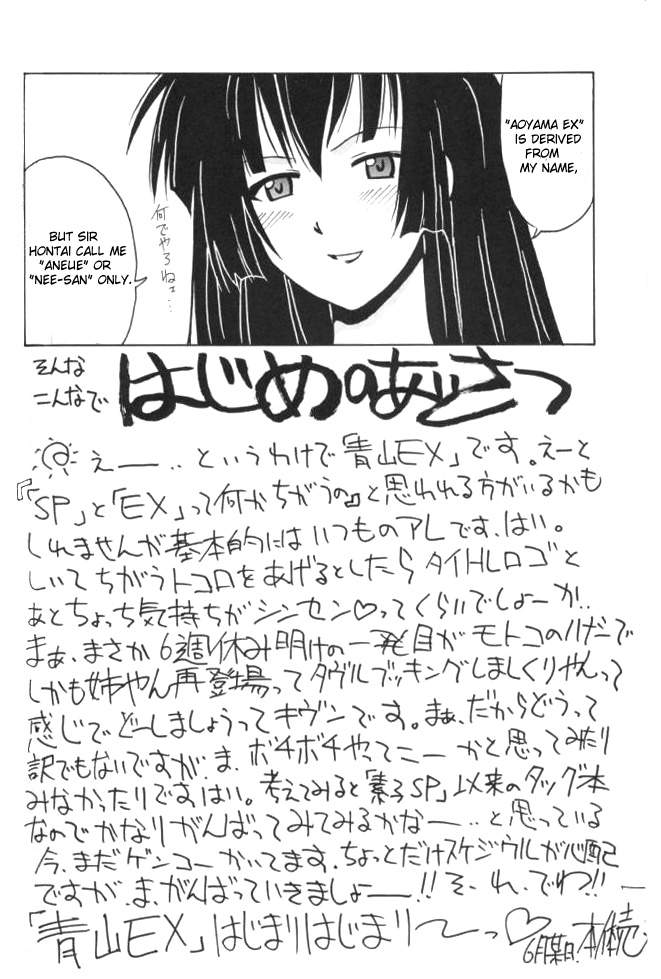 "AOYAMA EX"
IS DERIVED
FROM
MY NAME,
BUT SIR
HONTAI CALL ME
"ANEUE" OR
"NEE-SAN" ONLY.
何でやろねェ…
そんな
こんなで
はじめのあいさつ
えー―‥というわけで「青山EX」です。えーと
『「SP」と「EX」って何がちがうの』と思われる方がいるかも
しれませんが基本的にはいつものアレです、はい。
しいてちがうトコロをあげるとしたらタイトルロゴと
あとちょっち気持ちがシンセン♡ってくらいでしょーか‥
まぁ、まさか6週休み明けの一発目がモトコのハナシで
しかも姉やん再登場ってダブルブッキングしましくりやんって
感じでどーしましょうってキブンです。まぁ、だからどうって
訳でもないですが、ま、ボチボチやってこーかと思ってみたり
みなかったりですはい。考えてみると「素子SP」以来のタッグ本
なのでかなりがんばってみてみるかなー―‥と思っている
今、まだゲンコーかいてます、ちょっとだけスケジウルが心配
ですが、ま、がんばっていきましょー―!!そ、れ、でわ!!
「青山EX」はじまりはじまり〜っ♡
6月某日、本体続